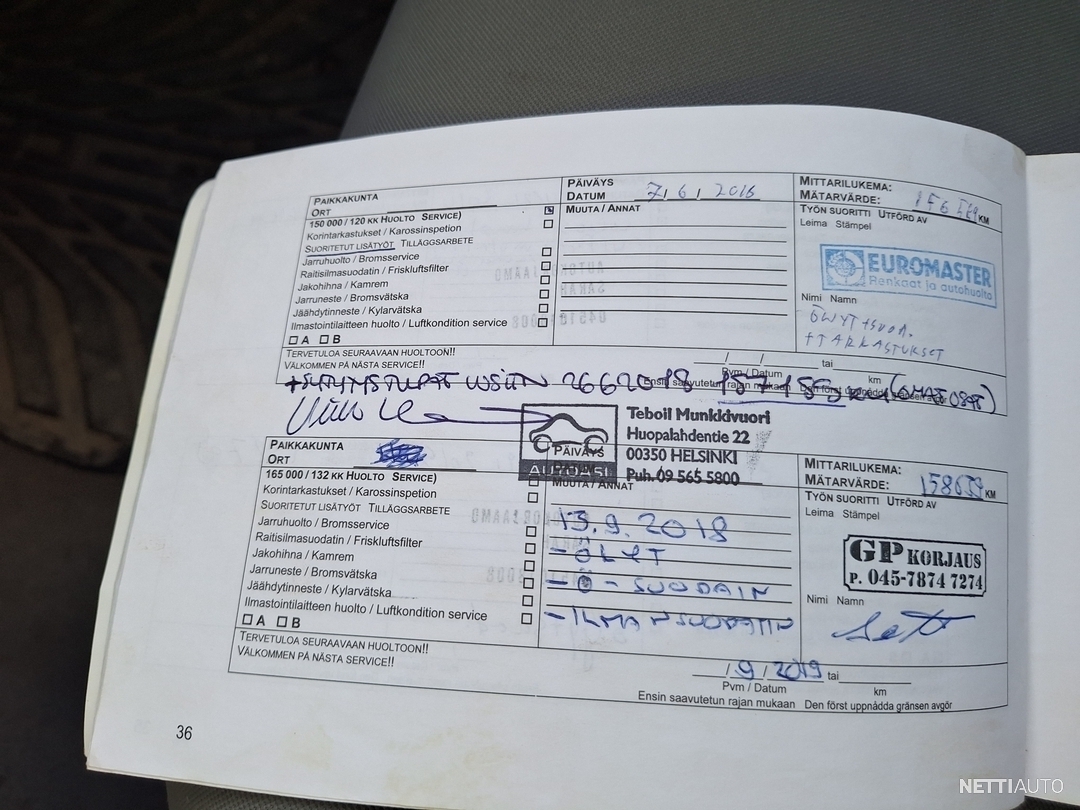 PAIKKAKUNTA
ORT
PÄIVÄYS
DATUM 7/6/2016
MITTARILUKEMA:
MÄTARVÄRDE: KM
150 000 / 120 KK HUOLTO SERVICE)
Korintarkastukset / Karossinspetion
SUORITETUT LISÄTYÖT TILLÄGGSARBETE
Jarruhuolto / Bromsservice
Raitisilmasuodatin / Friskluftsfilter
Jakohihna / Kamrem
Jarruneste / Bromsvätska
Jäähdytinneste / Kylarvätska
Ilmastointilaitteen huolto / Luftkondition service
A B
MUUTA / ANNAT
TYÖN SUORITTI UTFÖRD AV
Leima Stämpel
EUROMASTER
Renkaat ja autohuolto
Nimi Namn
ÖLJYT+SUOD.
+TARKASTUKSET
TERVETULOA SEURAAVAAN HUOLTOON!!
VÄLKOMMEN PÅ NÄSTA SERVICE!!
/ / tai
Pvm / Datum km
Ensin saavutetun rajan mukaan Den först uppnådda gränsen avgör
+SYTYTSTULPAT UUSIIN 2662018 157155 KM (OMAT OSAT)
AUTOASI
Teboil Munkkivuori
Huopalahdentie 22
00350 HELSINKI
Puh. 09 565 5800
PAIKKAKUNTA
ORT
PÄIVÄYS
MITTARILUKEMA:
MÄTARVÄRDE: KM
165 000 / 132 KK HUOLTO SERVICE)
Korintarkastukset / Karossinspetion
SUORITETUT LISÄTYÖT TILLÄGGSARBETE
Jarruhuolto / Bromsservice
Raitisilmasuodatin / Friskluftsfilter
Jakohihna / Kamrem
Jarruneste / Bromsvätska
Jäähdytinneste / Kylarvätska
Ilmastointilaitteen huolto / Luftkondition service
A B
MUUTA / ANNAT
13.9.2018
-ÖLYT
-Ö-SUODAIN
-ILMANSUODATIN
TYÖN SUORITTI UTFÖRD AV
Leima Stämpel
GP KORJAUS
P. 045-7874 7274
Nimi Namn
TERVETULOA SEURAAVAAN HUOLTOON!!
VÄLKOMMEN PÅ NÄSTA SERVICE!!
/9/2019 tai
Pvm / Datum km
Ensin saavutetun rajan mukaan Den först uppnådda gränsen avgör
36
NETTIAUTO